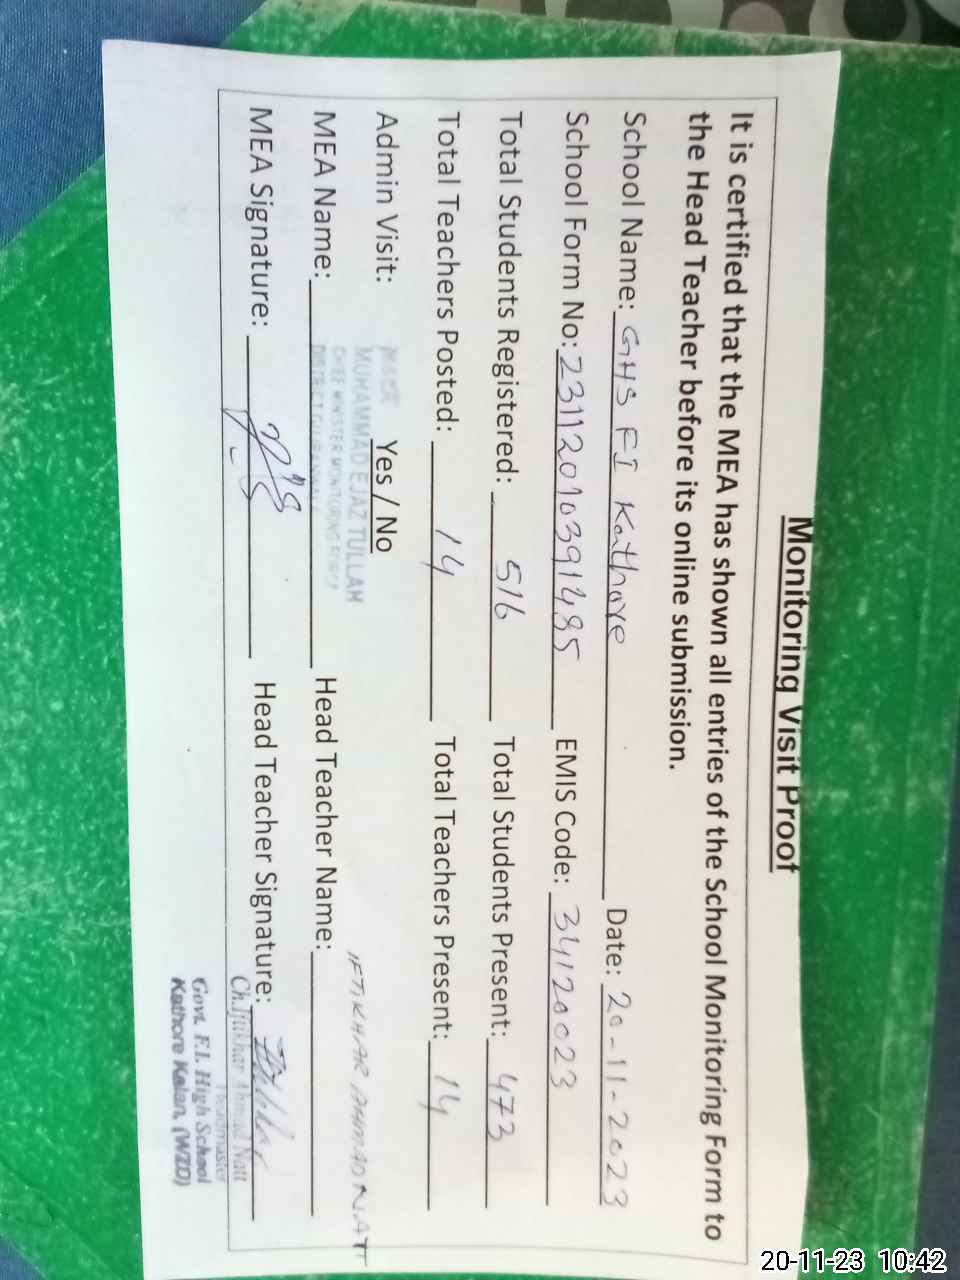 Monitoring Visit Proof
It is certified that the MEA has shown all entries of the School Monitoring Form to
the Head Teacher before its online submission.
School Name: GHS FI Kathore Date: 20-11-2023
School Form No: 23112010391485 EMIS Code: 34120023
Total Students Registered: 516 Total Students Present: 473
Total Teachers Posted: 14 Total Teachers Present: 14
Admin Visit: Yes / No
MUHAMMAD EJAZ TULLAH
CHIEF MINISTER MONITORING FORCE
DISTRICT GUJRANWALA
MEA Name: Head Teacher Name: IFTIKHAR AHMAD NAT
MEA Signature: Head Teacher Signature:
Ch.Iftikhar Ahmad Natt
Headmaster
Govt. F.I. High School
Kathore Kalan, (WZD)
20-11-23 10:42